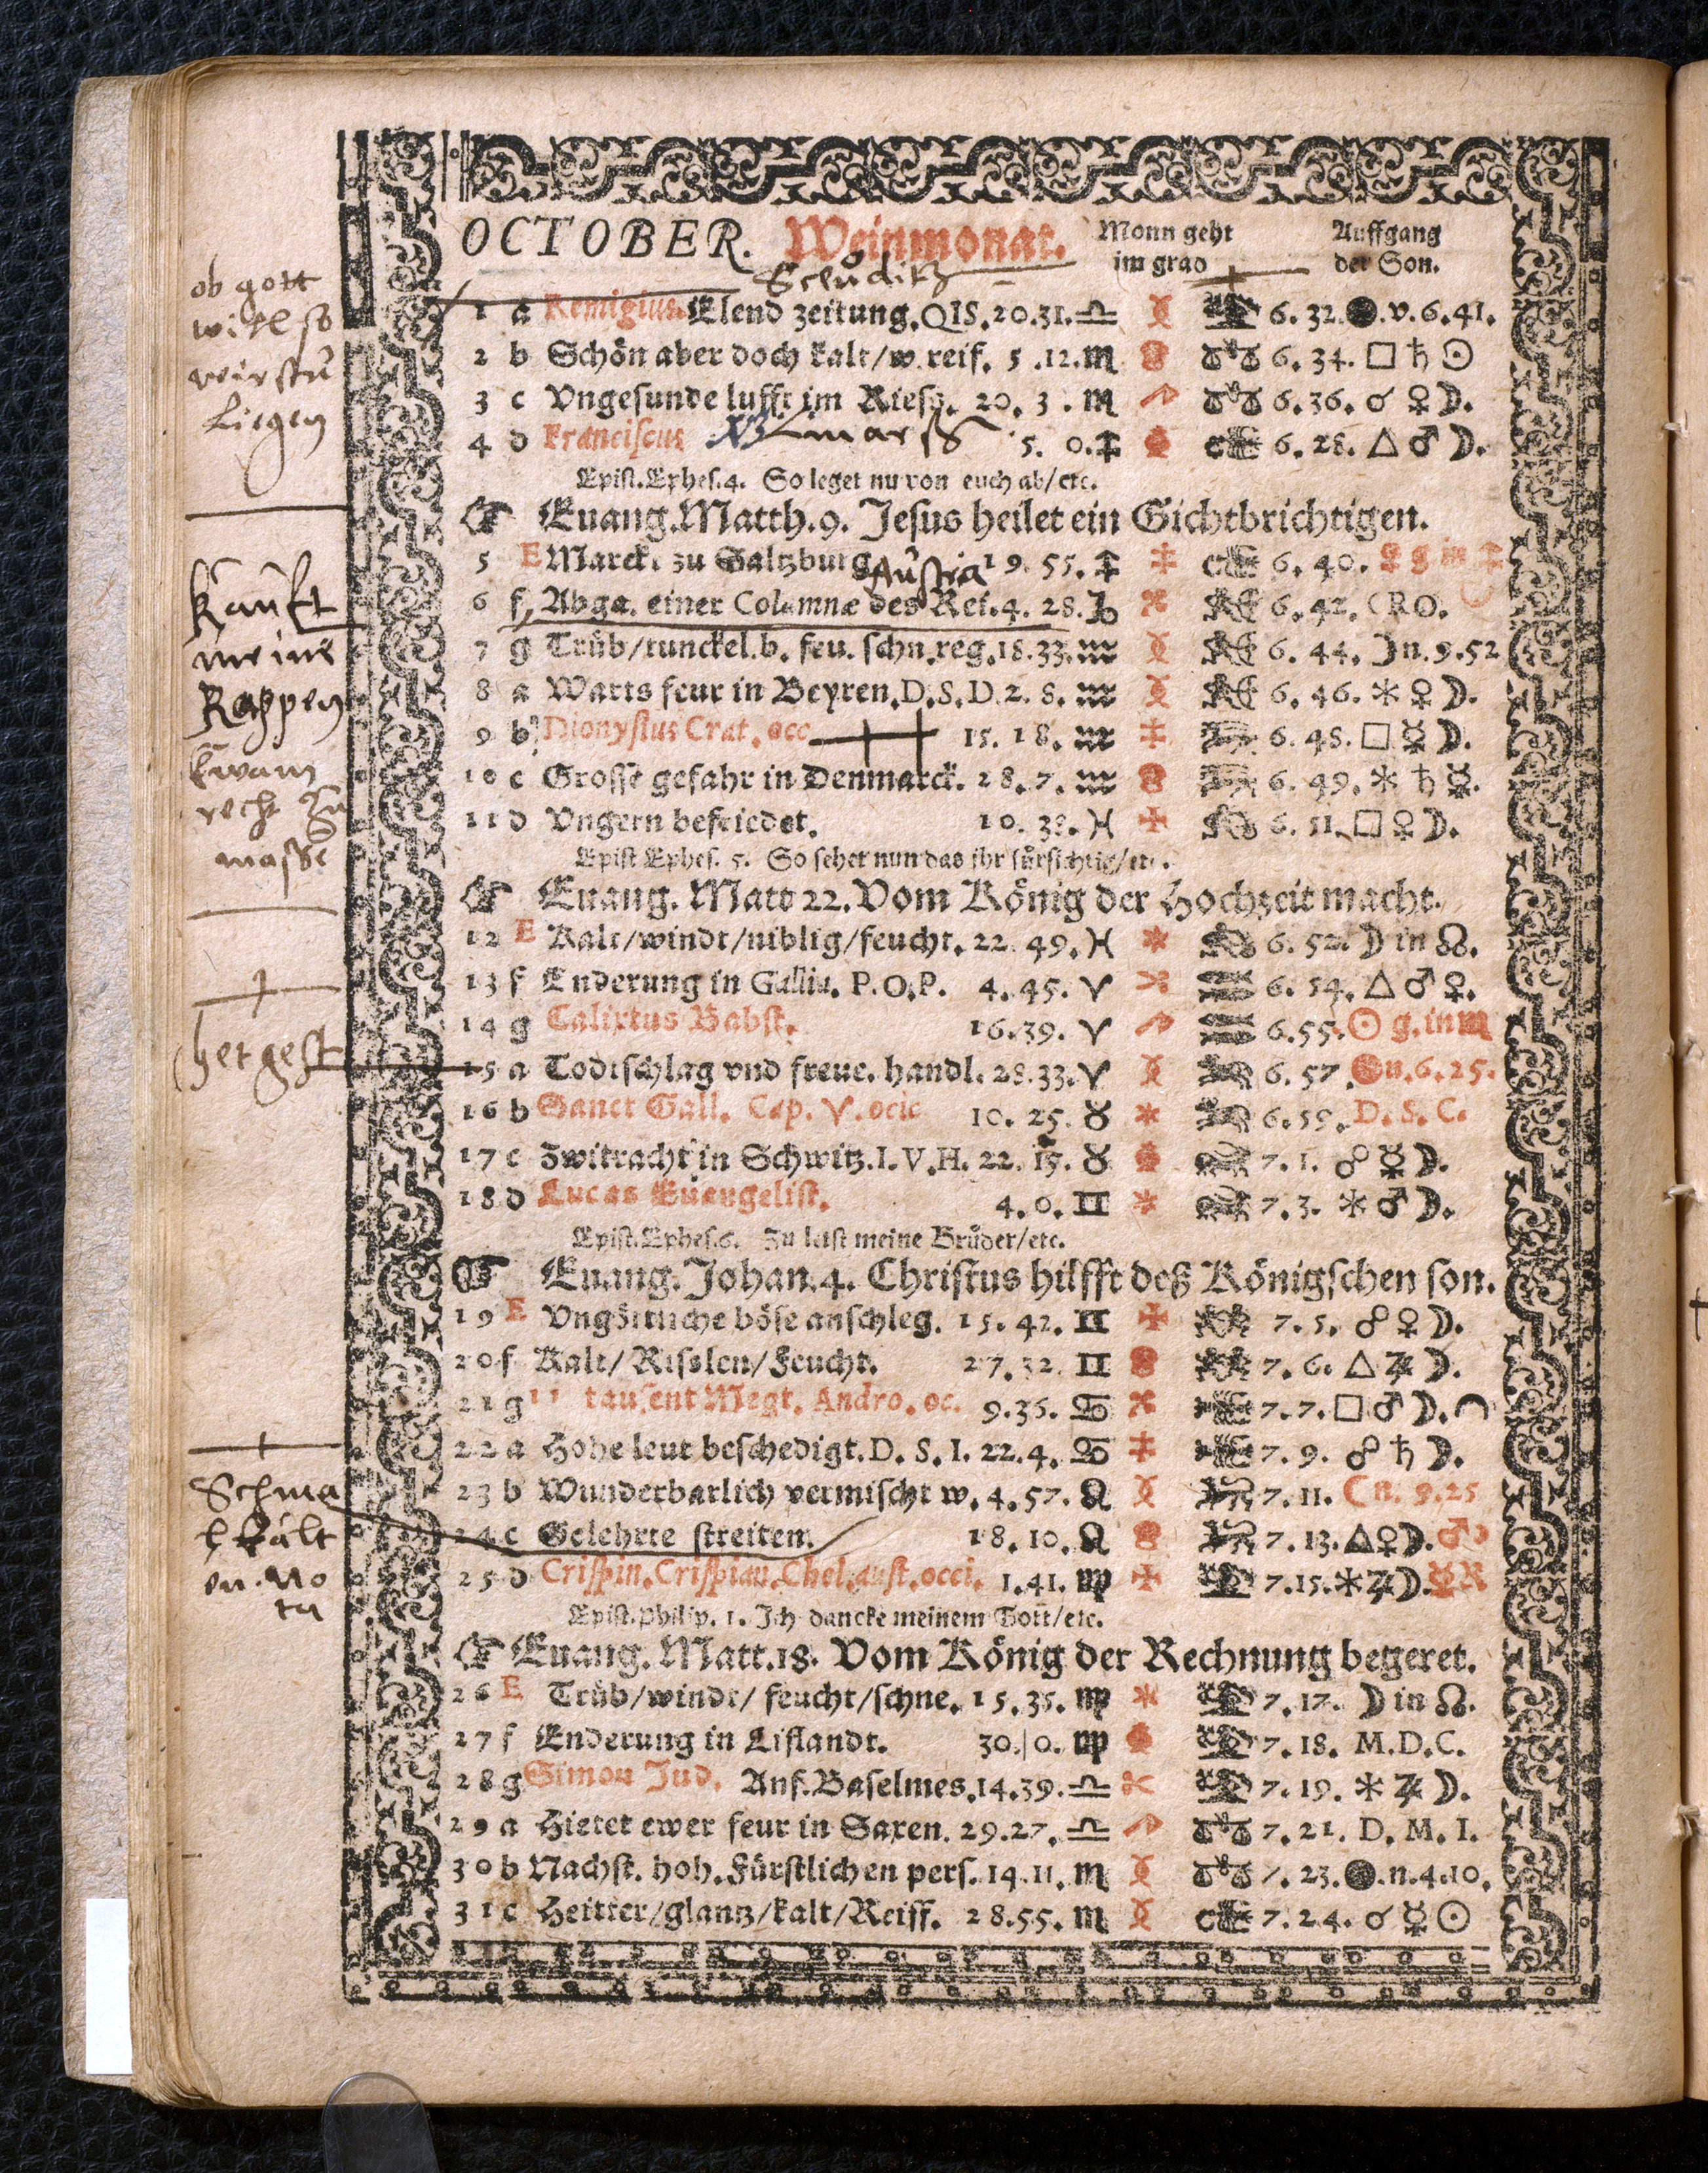 OCTOBER. Weinmonat. Monn geht Auffgang
im grad der Son.
ob gott
will so
liegen
1 a Remigius. Elend zeitung. QIS. 20.31. ♎ 6. 32. ●.v.6.41.
2 b Schön aber doch kalt/w. reif. 5.12. ♏ 6. 34. □ ♄ ☉
3 c Vngesunde lufft im Riess. 20. 3. ♏ 6.36. ☌ ♀ ☽.
4 d Franciscus 5. 0. ♐ 6. 28. △ ♂ ☽.
Epist. Ephes. 4. So leget nu von euch ab/etc.
☞ Euang. Matth. 9. Jesus heilet ein Gichtbrichtigen.
5 E Marckt zu Saltzburg 19. 55. ♐ 6. 40. ☿ g in ♐
Austria
6 f Abga. einer Columnæ des Rei. 4. 28. ♑ 6. 42. ☾ R O.
7 g Trüb/tunckel. b. feu. schn. reg. 18.33. ♒ 6. 44. ☽ n. 9.52
8 a Warts feur in Beyren. D.S.D. 2. 8. ♒ 6. 46. ⚹ ♀ ☽.
9 b Dionysius Crat. occ 15. 18. ♒ 6. 48. □ ☿ ☽.
10 c Grosse gefahr in Denmarck. 28. 7. ♒ 6. 49. ⚹ ♄ ☿.
11 d Vngern befriedet. 10. 38. ♓ 6. 51. □ ♀ ☽.
kaufft
meine
Rappen
recht zu
masse
Epist. Ephes. 5. So sehet nun das ihr fürsichtig/etc.
☞ Euang. Matt 22. Vom König der Hochzeit macht.
12 E Kalt/windt/niblig/feucht. 22. 49. ♓ 6. 52. ☽ in ☊.
13 f Enderung in Gallia. P.O.P. 4. 45. ♈ 6. 54. △ ♂ ♀.
14 g Calixtus Babst. 16.39. ♈ 6.55. ☉ g. in ♏
15 a Todtschlag vnd freue. handl. 28.33. ♈ 6. 57. ●n.6.25.
16 b Sanct Gall. Cap. ♈. ocic 10. 25. ♉ 6.59. D. S. C.
17 c Zwitracht in Schwitz. I.V.H. 22. 15. ♉ 7. 1. ☍ ☿ ☽.
18 d Lucas Euangelist. 4. 0. ♊ 7. 3. ⚹ ♂ ☽.
Epist. Ephes. 6. Zu letst meine Brüder/etc.
☞ Euang. Johan. 4. Christus hilfft deß Königschen son.
19 E Vngöttliche böse anschleg. 15. 42. ♊ 7. 5. ☍ ♀ ☽.
20 f Kalt/Risslen/Feucht. 27. 32. ♊ 7. 6. △ ♃ ☽.
21 g 11 tausent Megt. Andro. oc. 9.35. ♋ 7. 7. □ ♂ ☽.
22 a Hohe leut beschedigt. D. S. I. 22.4. ♋ 7. 9. ☍ ♄ ☽.
23 b Wunderbarlich vermischt w. 4.57. ♌ 7. 11. ☾ n. 9.25
24 c Gelehrte streiten. 18. 10. ♌ 7. 13. △ ♀ ☽. ♂
25 d Crispin. Crispian. Chel. aust. occi. 1.41. ♍ 7.15. ⚹ ♃ ☽. ☿ R
Schma
lkalt
en. No
ta
Epist. Philip. 1. Ich dancke meinem Gott/etc.
☞ Euang. Matt. 18. Vom König der Rechnung begeret.
26 E Trüb/windt/feucht/schne. 15. 35. ♍ 7. 17. ☽ in ☊.
27 f Enderung in Liflandt. 30. 0. ♍ 7. 18. M.D.C.
28 g Simon Jud. Anf. Baselmes. 14.39. ♎ 7. 19. ⚹ ♃ ☽.
29 a Hietet ewer feur in Saxen. 29.27. ♎ 7. 21. D. M. I.
30 b Nachst. hoh. Fürstlichen pers. 14. 11. ♏ 7. 23. ●.n.4.10.
31 c Heitter/glantz/kalt/Reiff. 28.55. ♏ 7. 24. ☌ ☿ ☉